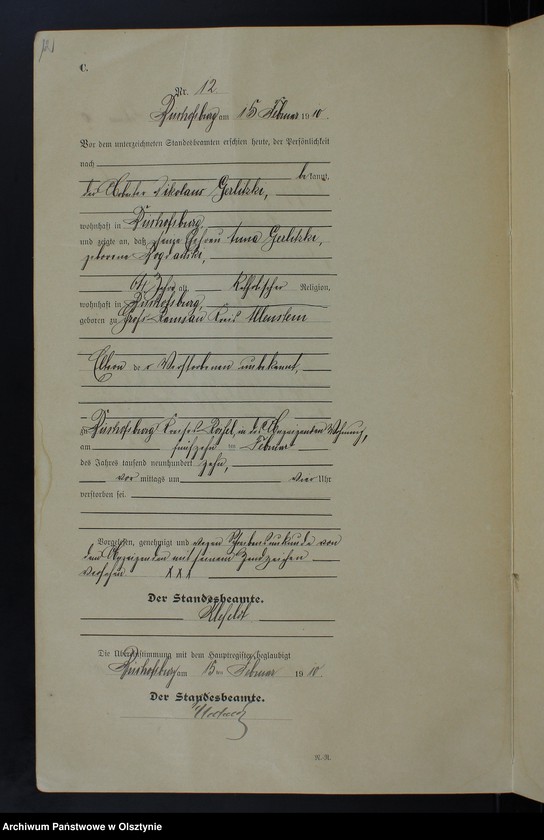 C.
Nr. 12.
Bischofsburg am 15 Februar 1910.
Vor dem unterzeichneten Standesbeamten erschien heute, der Persönlichkeit
nach
be kannt,
der Arbeiter Nikolaus Gerlitzki,
wohnhaft in Bischofsburg,
und zeigte an, daß seine Ehefrau Anna Gerlitzki,
geborene
64 Jahre alt, katholischer Religion,
wohnhaft in Bischofsburg,
geboren zu Groß Ramsau Kreis Allenstein
Eltern der Verstorbenen unbekannt,
zu Bischofsburg Kreises Rössel, in des Anzeigenden Wohnung,
am fünfzehn ten Februar
des Jahres tausend neunhundert zehn,
vor mittags um vier Uhr
verstorben sei.
Vorgelesen, genehmigt und wegen Schreibensunkunde von
dem Anzeigenden mit seinem Handzeichen
versehen XXX
Der Standesbeamte.
Die Übereinstimmung mit dem Hauptregister beglaubigt
Bischofsburg am 15 ten Februar 1910.
Der Standesbeamte.
N.-R.
Archiwum Państwowe w Olsztynie